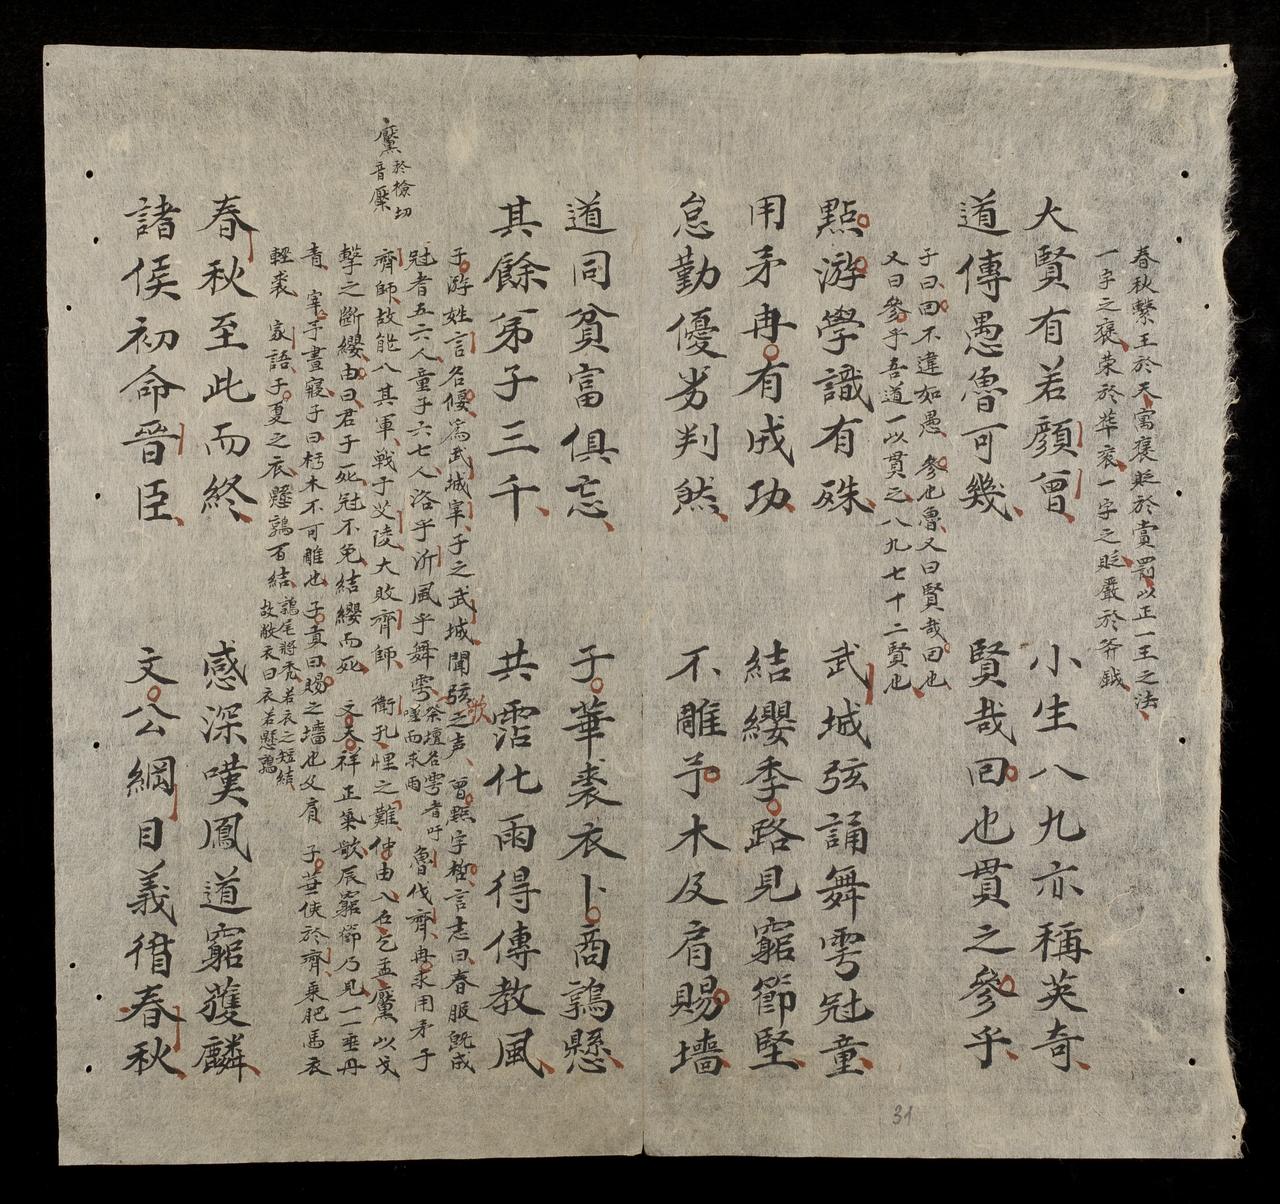 春秋繫王於天寓褒貶於賞罰以正一王之法
一字之褒荣於華衮一字之貶嚴於斧鉞
大賢有若顏曾 小生八九亦稱英奇
道傳愚魯可幾 賢哉回也貫之參乎
子曰回不違如愚 參也魯又曰賢哉回也
又曰參乎吾道一以貫之八九七十二賢也
點游學識有殊 武城弦誦舞雩冠童
用矛冉有成功 結纓季路見窮節堅
怠勤優劣判然 不雕予木及肩賜墻
道同貧富俱忘 子華裘衣卜商鶉懸
其餘弟子三千 共霑化雨得傳教風
子游姓言名偃爲武城宰子之武城聞弦歌之声 曾點字晳言志曰春服既成
冠者五六人童子六七人浴乎沂風乎舞雩 祭壇名雩者吁嗟而求雨 魯伐齊冉求用矛于
齊師故能入其軍戰于艾陵大敗齊師 衛孔悝之難仲由入召乞盂黶以戈
黶 於檢切 音厴
擊之断纓由曰君子死冠不免結纓而死 文天祥正氣歌辰窮節乃見一一垂丹
青 宰予晝寢子曰朽木不可雕也 子貢曰賜之墻也及肩 子華使於齊乘肥馬衣
輕裘 家語子夏之衣懸鶉百結 鶉尾將秃若衣之短結 故敝衣曰衣若懸鶉
春秋至此而終 感深嘆鳳道窮獲麟
諸侯初命晉臣 文公綱目義循春秋
31